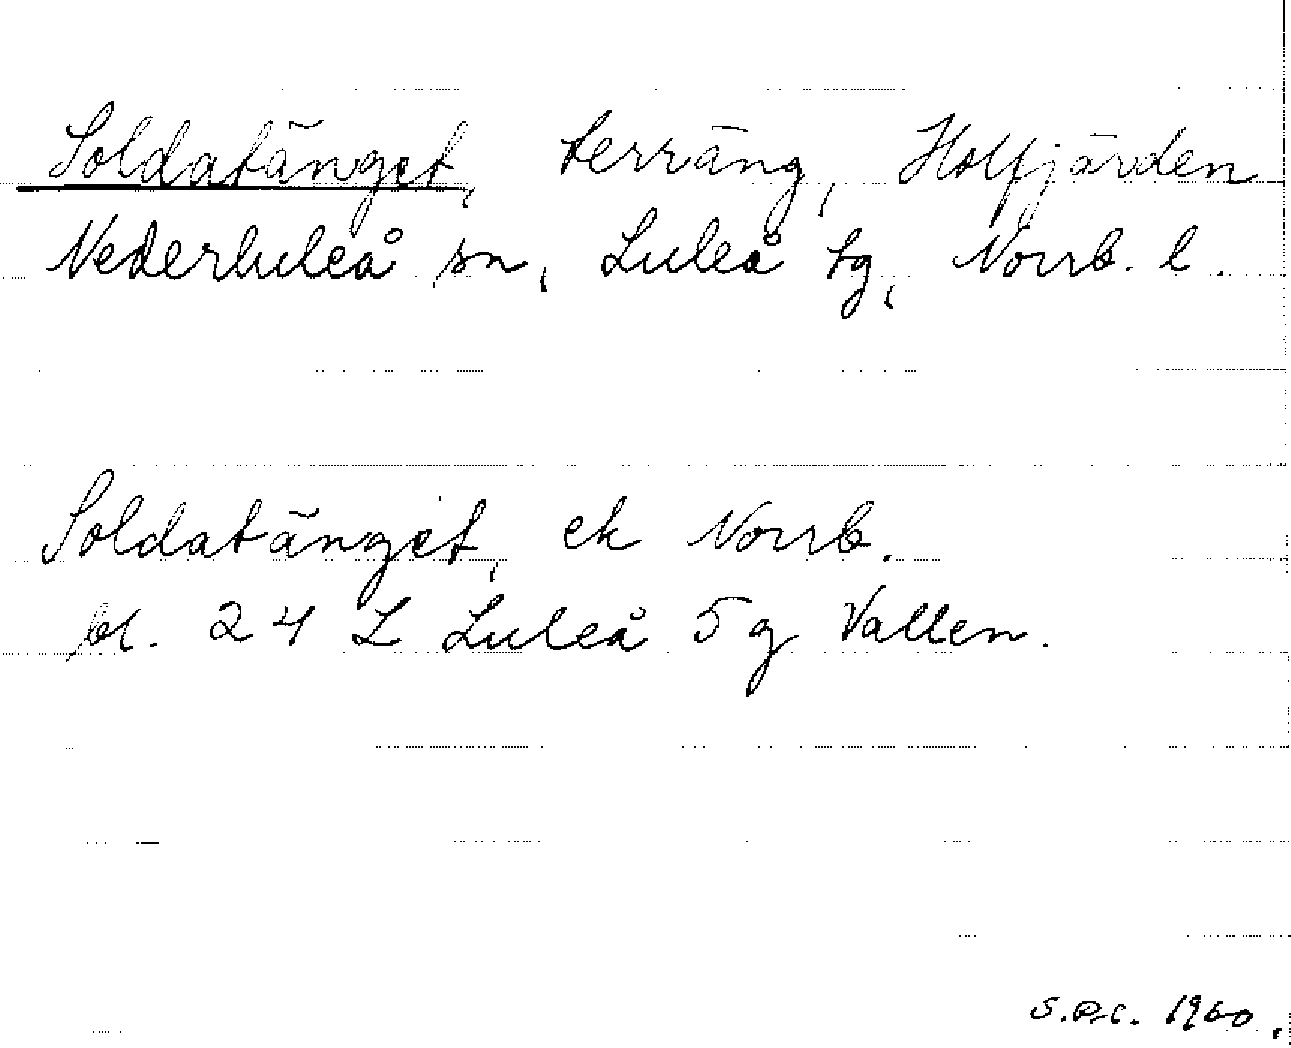 Soldatänget, terräng, Holfjärden
Nederluleå sn, Luleå tg, Norrb. l.
Soldatänget, ek Norrb.
bl. 24 L Luleå 5 g Vallen.
1960.